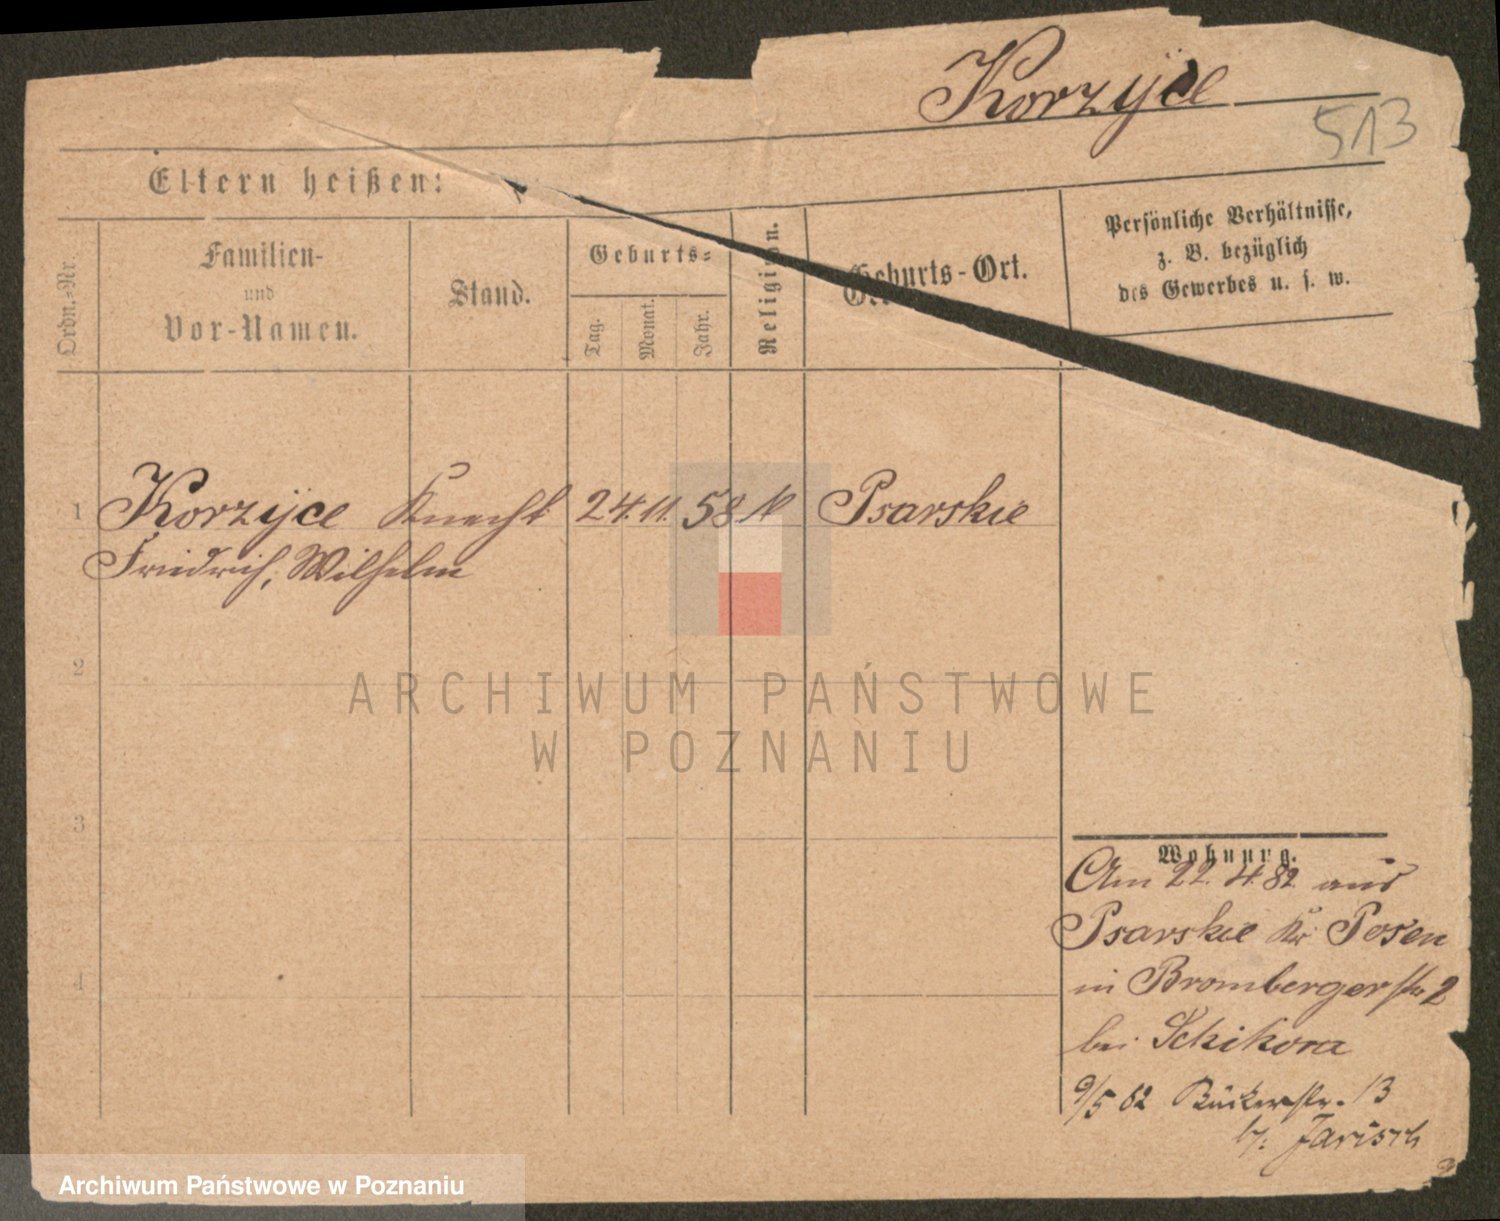 Korzÿce
513
Eltern heißen:
Ordn.-Nr.
Familien-
und
Vor-Namen.
Stand.
Geburts-
Tag.
Monat.
Jahr.
Religion.
Geburts-Ort.
Persönliche Verhältnisse,
z. B. bezüglich
des Gewerbes u. s. w.
1 Korzÿce Knecht 24. 11. 58 k Psarskie
Friedrich, Wilhelm
2
3
4
Wohnung.
Am 22. 4. 82. aus
Psarskie Kr. Posen
in Brombergerstr 2
bei Schikora
9/5 82 Bäckerstr. 13
b. Jarisch
ARCHIWUM PAŃSTWOWE
W POZNANIU
Archiwum Państwowe w Poznaniu